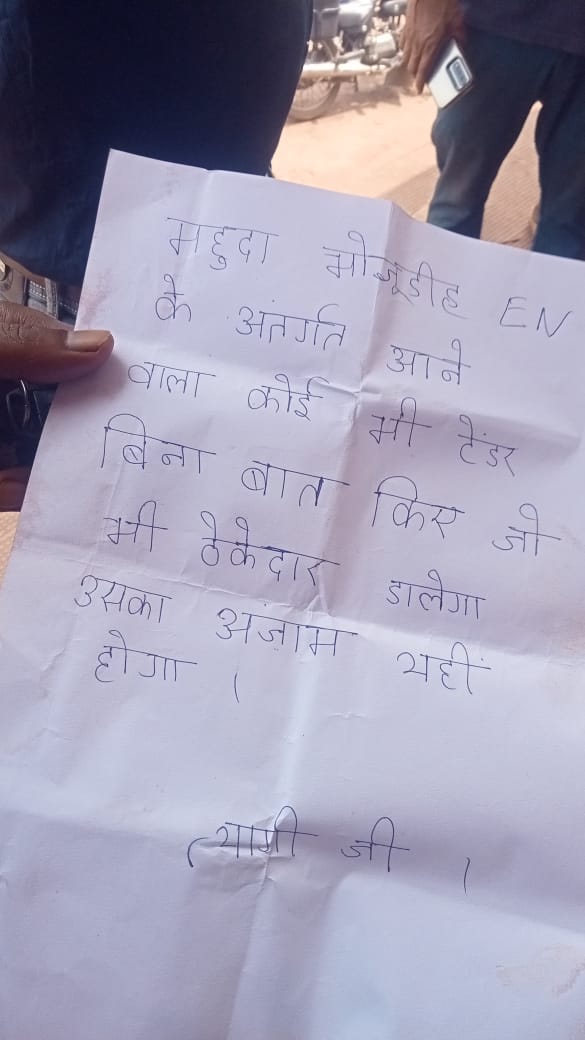 महुदा भोजूडीह EN
के अंतर्गत आने
वाला कोई भी टेंडर
बिना बात किए जो
भी ठेकेदार डालेगा
उसका अंजाम यहीं
होगा ।
त्यागी जी ।